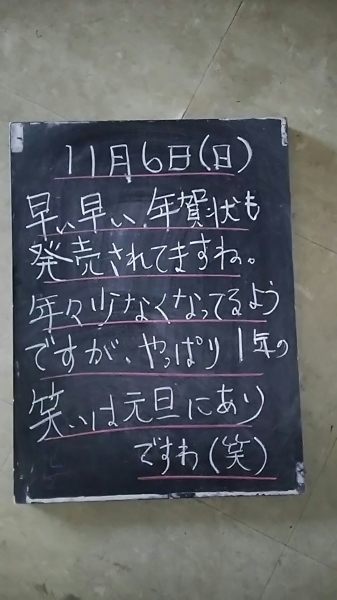 11月6日(日)
早い早い、年賀状も
発売されてますね。
年々少なくなってるよう
ですが、やっぱり1年の
笑いは元旦にあり
ですわ(笑)